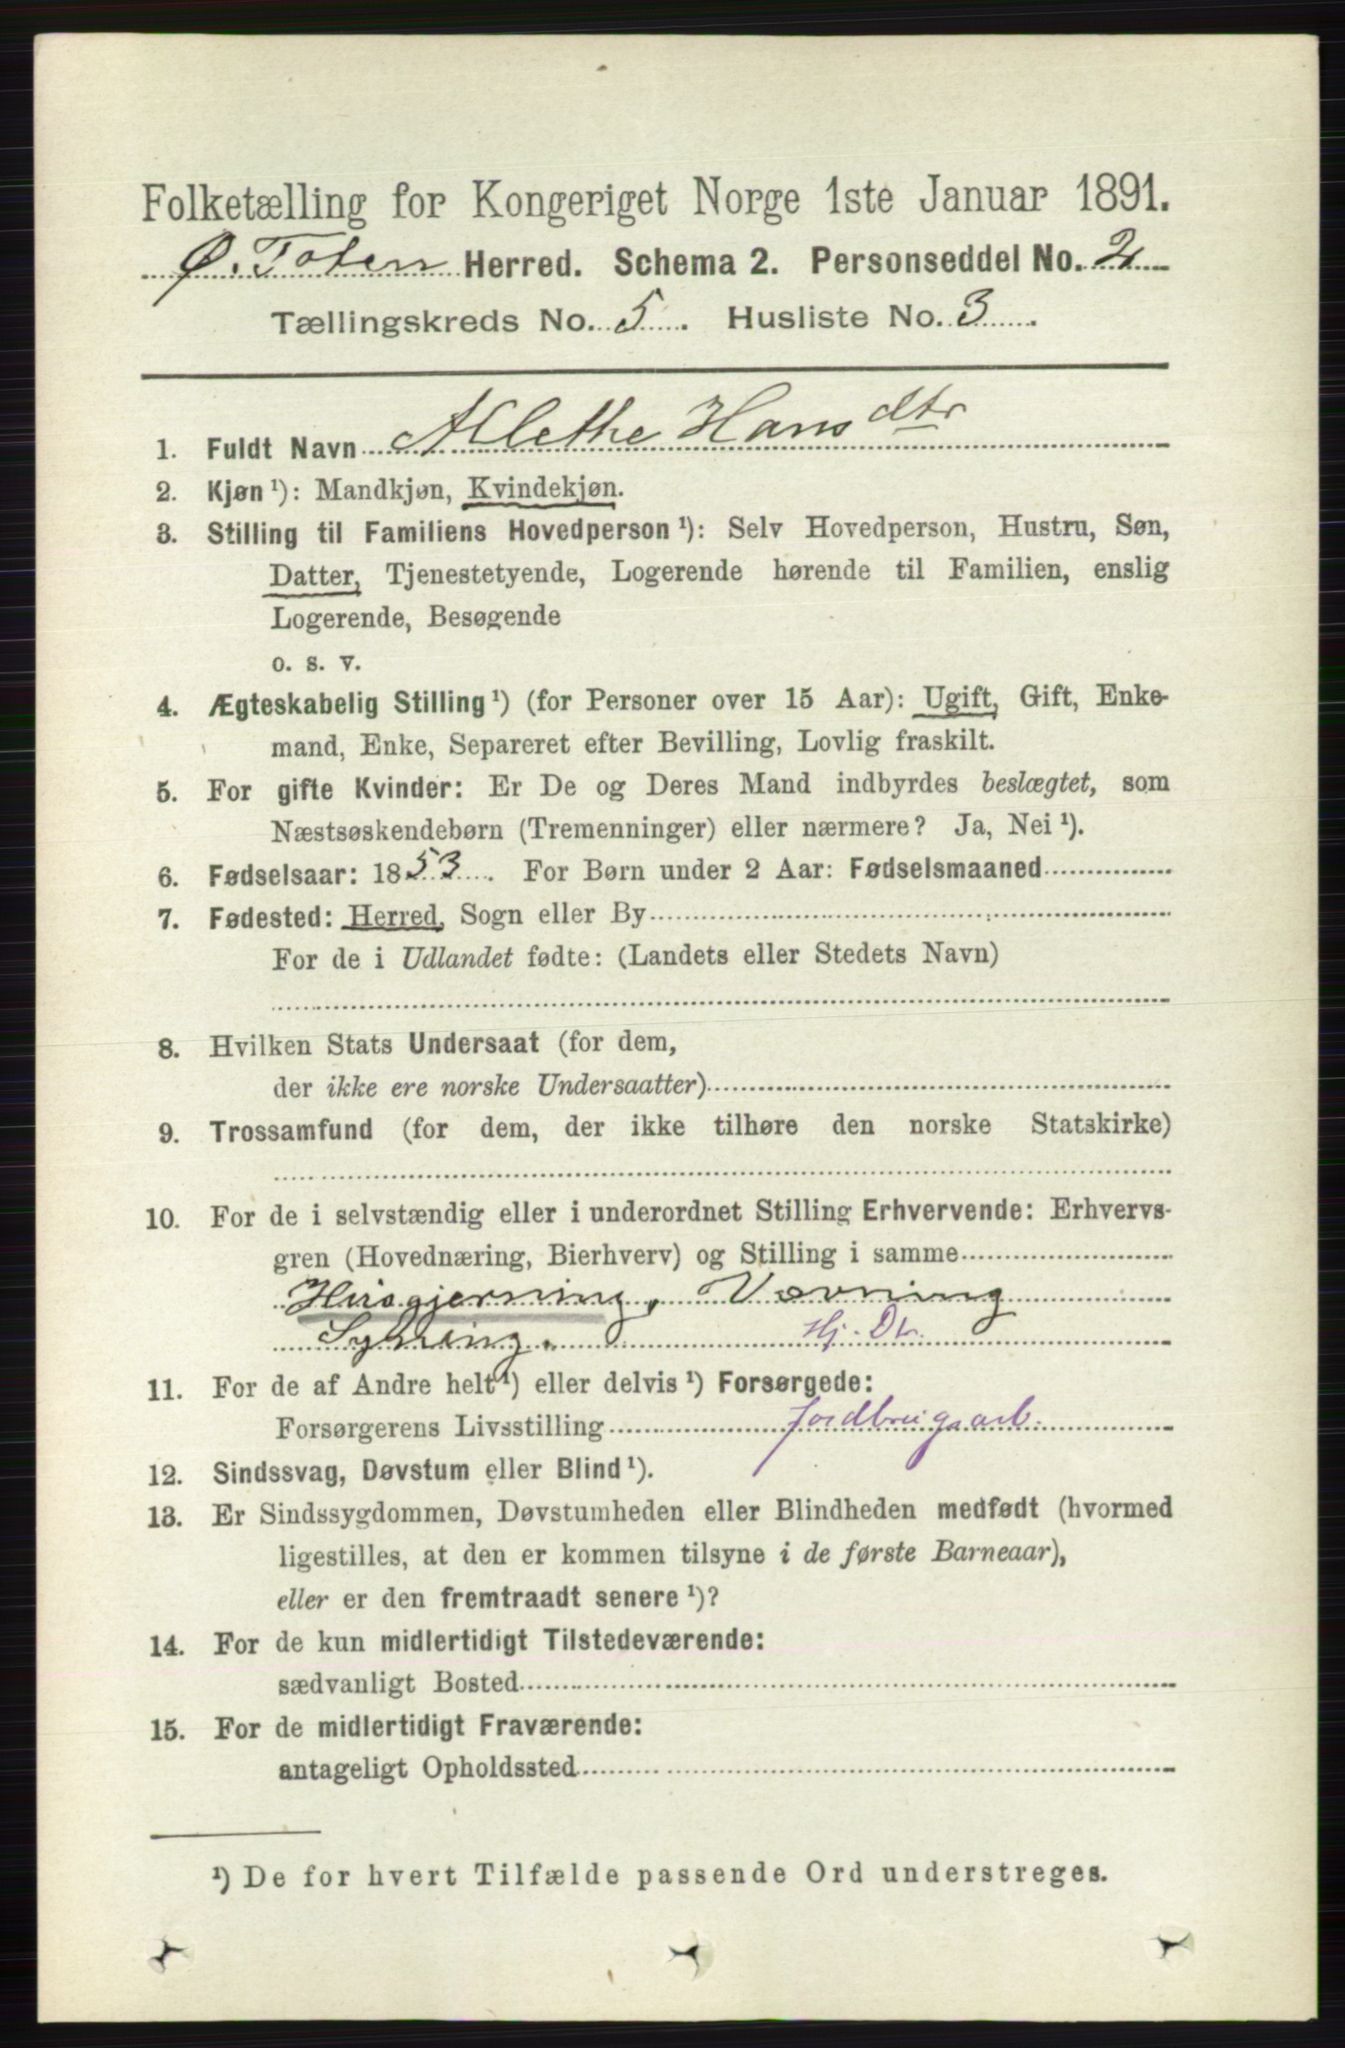 Folketælling for Kongeriget Norge 1ste Januar 1891.
Ø. Toten Herred. Schema 2. Personseddel No. 2
Tællingskreds No. 5. Husliste No. 3.
1. Fuldt Navn Alethe Hansdtr
2. Kjøn ¹): Mandkjøn, Kvindekjøn.
3. Stilling til Familiens Hovedperson ¹): Selv Hovedperson, Hustru, Søn,
Datter, Tjenestetyende, Logerende hørende til Familien, enslig
Logerende, Besøgende
o. s. v.
4. Ægteskabelig Stilling ¹) (for Personer over 15 Aar): Ugift, Gift, Enke-
mand, Enke, Separeret efter Bevilling, Lovlig fraskilt.
5. For gifte Kvinder: Er De og Deres Mand indbyrdes beslægtet, som
Næstsøskendebørn (Tremenninger) eller nærmere? Ja, Nei ¹).
6. Fødselsaar: 1853. For Børn under 2 Aar: Fødselsmaaned
7. Fødested: Herred, Sogn eller By
For de i Udlandet fødte: (Landets eller Stedets Navn)
8. Hvilken Stats Undersaat (for dem,
der ikke ere norske Undersaatter)
9. Trossamfund (for dem, der ikke tilhøre den norske Statskirke)
10. For de i selvstændig eller i underordnet Stilling Erhvervende: Erhvervs-
gren (Hovednæring, Bierhverv) og Stilling i samme
Husgjerning, Vævning
Syning. Hj. Dt.
11. For de af Andre helt ¹) eller delvis ¹) Forsørgede:
Forsørgerens Livsstilling Jordbrugsarb.
12. Sindssvag, Døvstum eller Blind ¹).
13. Er Sindssygdommen, Døvstumheden eller Blindheden medfødt (hvormed
ligestilles, at den er kommen tilsyne i de første Barneaar),
eller er den fremtraadt senere ¹)?
14. For de kun midlertidigt Tilstedeværende:
sædvanligt Bosted
15. For de midlertidigt Fraværende:
antageligt Opholdssted
¹) De for hvert Tilfælde passende Ord understreges.